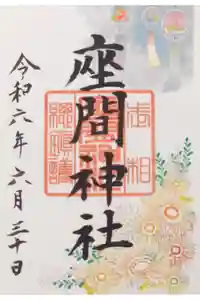 座間神社
令和六年六月三十日